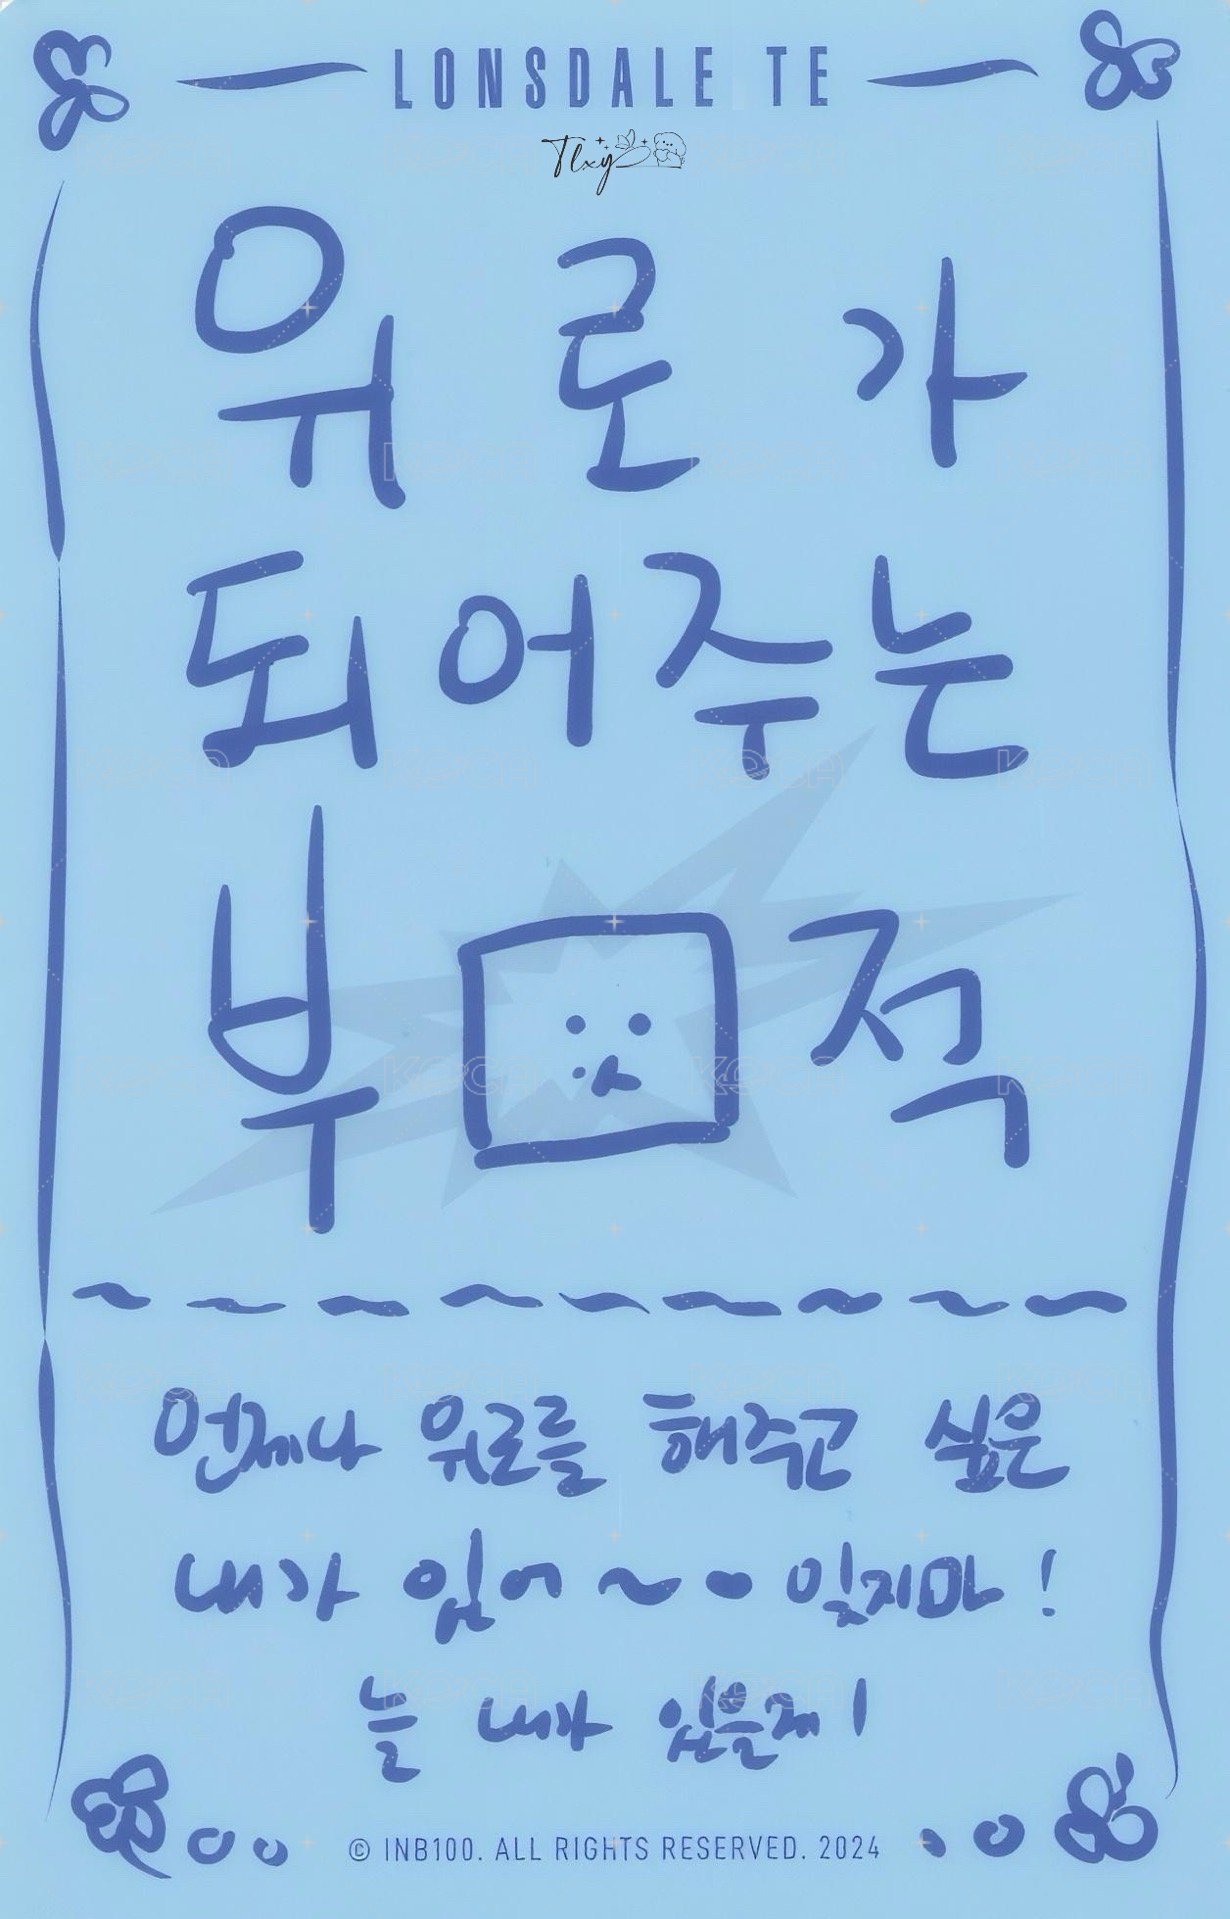 LONSDALE TE
Tlxy
위로가
되어주는
부 적
언제나 위로를 해주고 싶은
내가 있어~ 잊지마!
늘 내가 있을게!
© INB100. ALL RIGHTS RESERVED. 2024